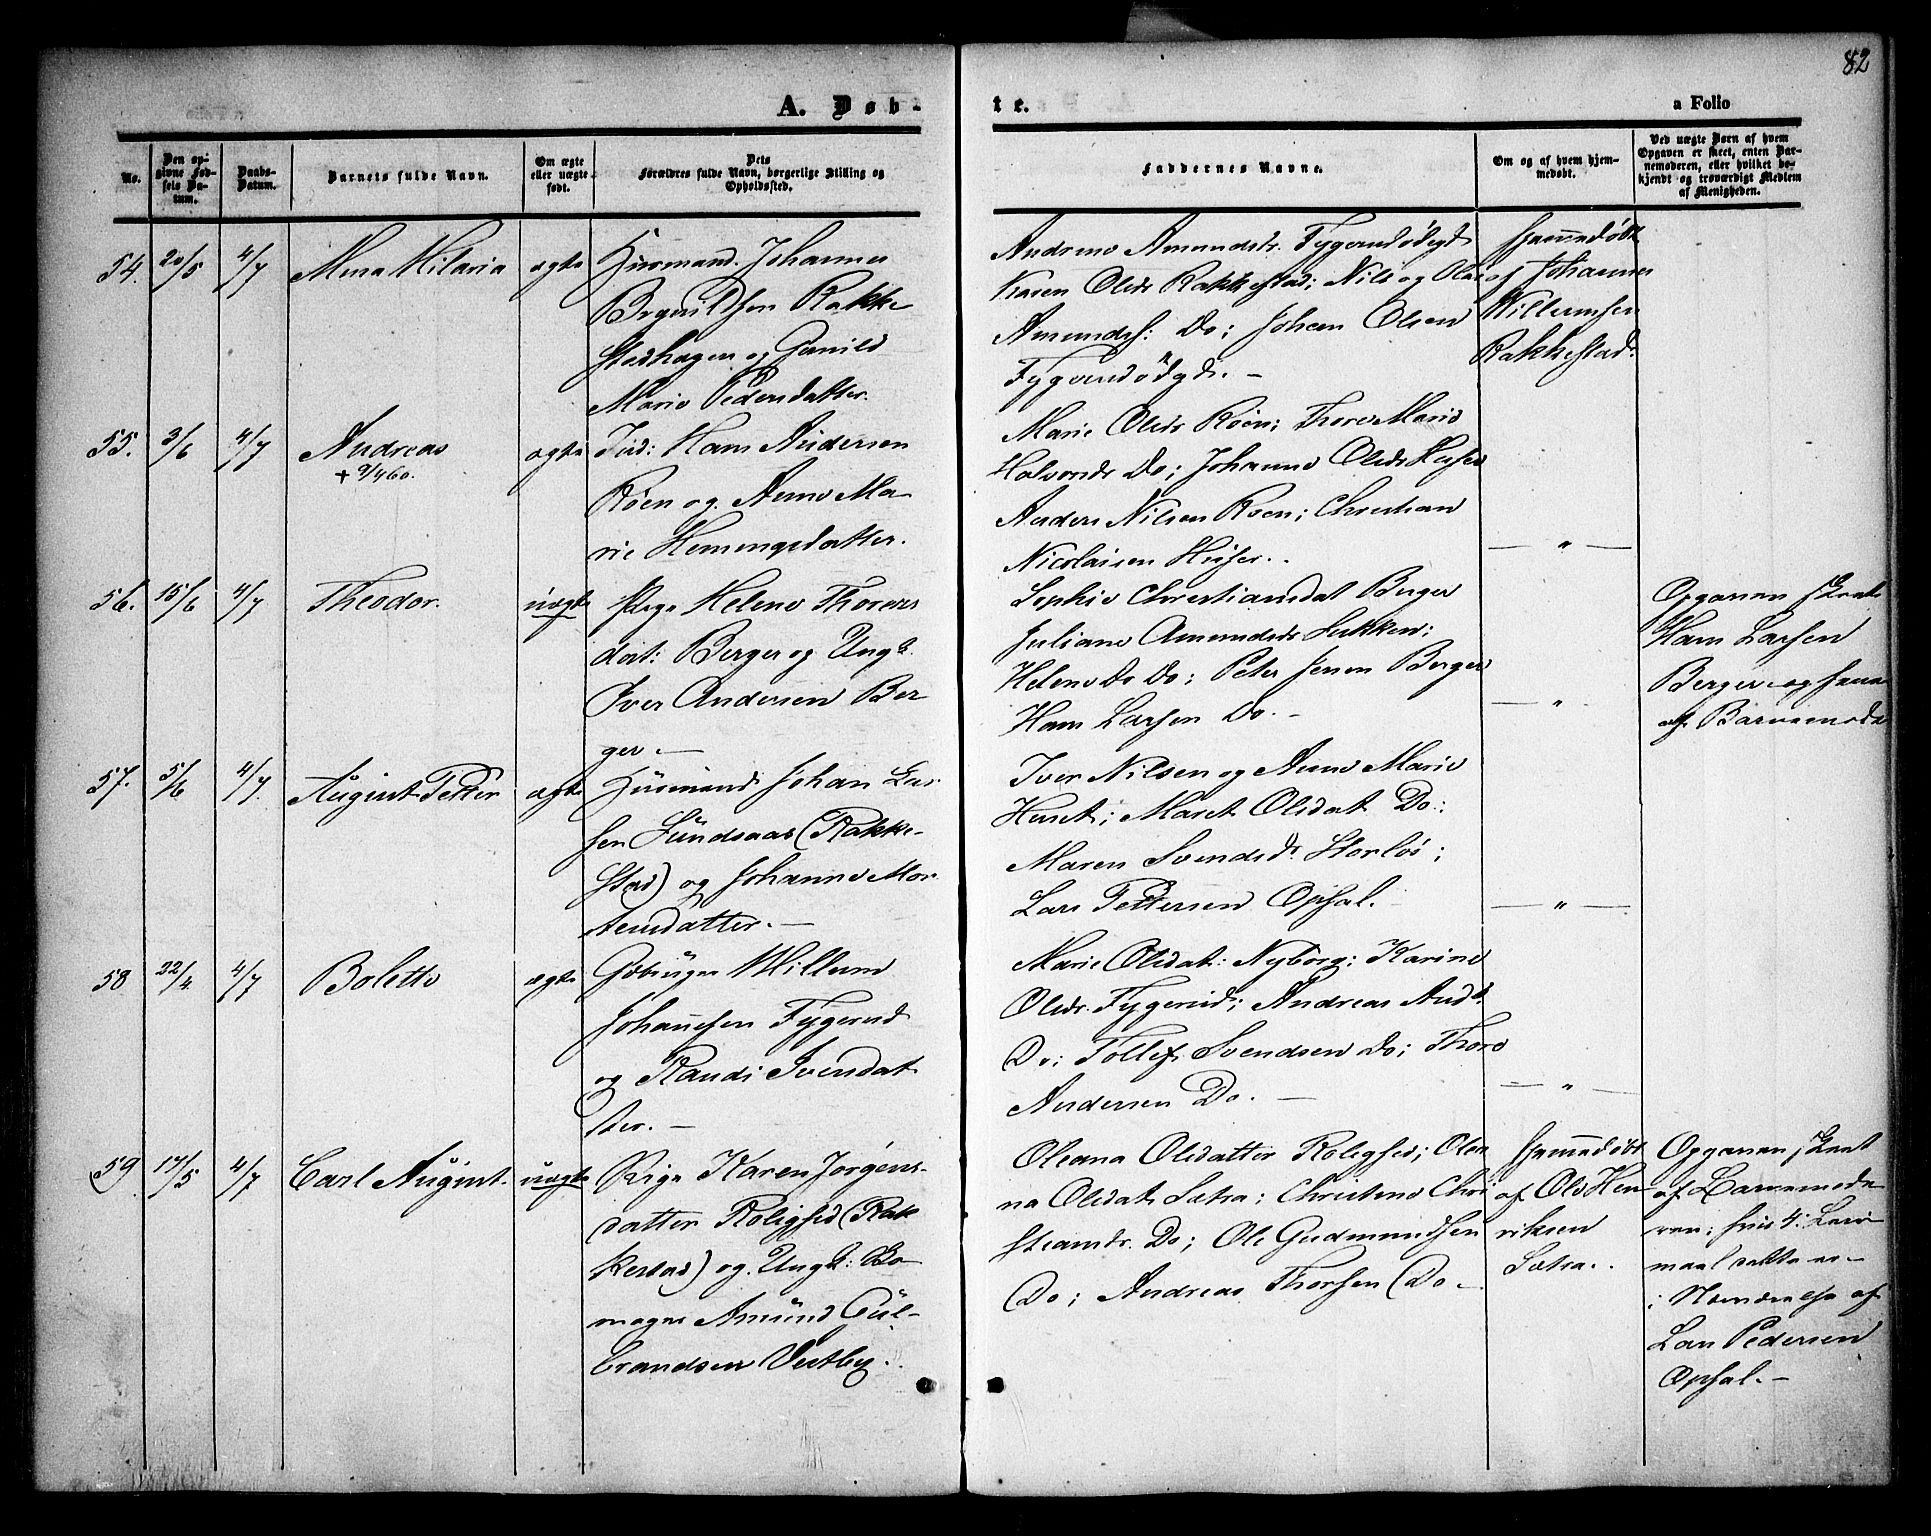 82
A. Døb-
te.
a Folio
No.
Den opgivne Fødsels Datum.
Daabs-Datum.
Barnets fulde Navn.
Om ægte eller uægte født.
Dets Forældres fulde Navn, borgerlige Stilling og Opholdssted.
Faddernes Navne.
Om og af hvem hjemmedøbt.
Ved uægte Børn af hvem Opgaven er skeet, enten Barnemoderen, eller hvilket bekjendt og troværdigt Medlem af Menigheden.
54. 20/5 4/7 Mina Milaria ægte Huusmand Johannes
Rakke
stadhagen og Gunild
Marie Pedersdatter.
Amundsdr.
Karen Olsdr Rakkestad; Nils og
Amunds: Do; Johan Olsen
Hjemmedøbt
af Johannes
Willumsen
Rakkestad.
55. 3/6 4/7 Andreas ægte Ind: Hans Andersen
+ 9/4 60.
Røen og Anne Ma
rie Hemingsdatter.
Marie Olsdr Røen; Thore Marie
Halvorsdr Do; Johanne Olsdr Huser
Anders Nilsen Røen; Christian
Nicolaisen Huser.
— " —
56. 15/6 4/7 Theodor. uægte Pige Helene Thores
dat: Berger og Ungk.
Iver Andersen Ber
ger. —
Sophie Christiansdat Berger
Juliane Amundsdr Lukken;
Helene Do Do; Peter Jensen Berger
Hans Larsen Do. —
— " —
Opgaven skeet
Hans Larsen
Berger og
af Barnemode
57. 5/6 4/7. August Petter ægte Huusmand Johan Lar
sen Sundsaas (Rakke-
stad) og Johanne Mor
tensdatter. —
Iver Nilsen og Anne Marie
Huset; Maret Olsdat Do:
Maren Svendsdr. Horløs;
Lars Pettersen Opsal.
— " —
58 22/4 4/7 Bolette ægte Gbruger Willum
Johannesen Fygerud
og Randi Svendat
ter. —
Marie Olsdat: Nyborg; Karine
Olsdr. Fygerud; Andreas Andr.
Do; Tollef Svendsen Do; Thore
Andersen Do. —
— " —
59 17/5 4/7 Carl August. uægte Pige Karen Jørgens-
datter Rolighed (Rak
kestad) og Ungk: Sko
mager Amund Gul-
brandsen Vestby.
Oleana Olsdatter Rolighed; Olea
na Olsdat Sætra; Christine Chri
stiansdr. Do; Ole Gudmundsen
Do; Andreas Thorsen Do —
Hjemmedøbt
af Ole Hen
riksen
Sætra.
Opgaven skeet
af Barnemode
ren; hvis 4. Leier
maal dette er —
i Nærværelse af
Lars Pedersen
Opsal. —